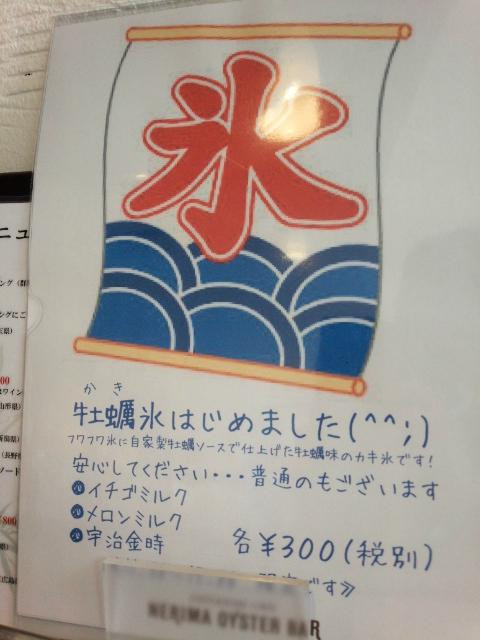 氷
かき
牡蠣氷はじめました(^^;)
フワフワ氷に自家製牡蠣ソースで仕上げた牡蠣味のカキ氷です!
安心してください・・・普通のもございます
イチゴミルク
メロンミルク
宇治金時
各¥300(税別)
です》
NERIMA OYSTER BAR
ニュ